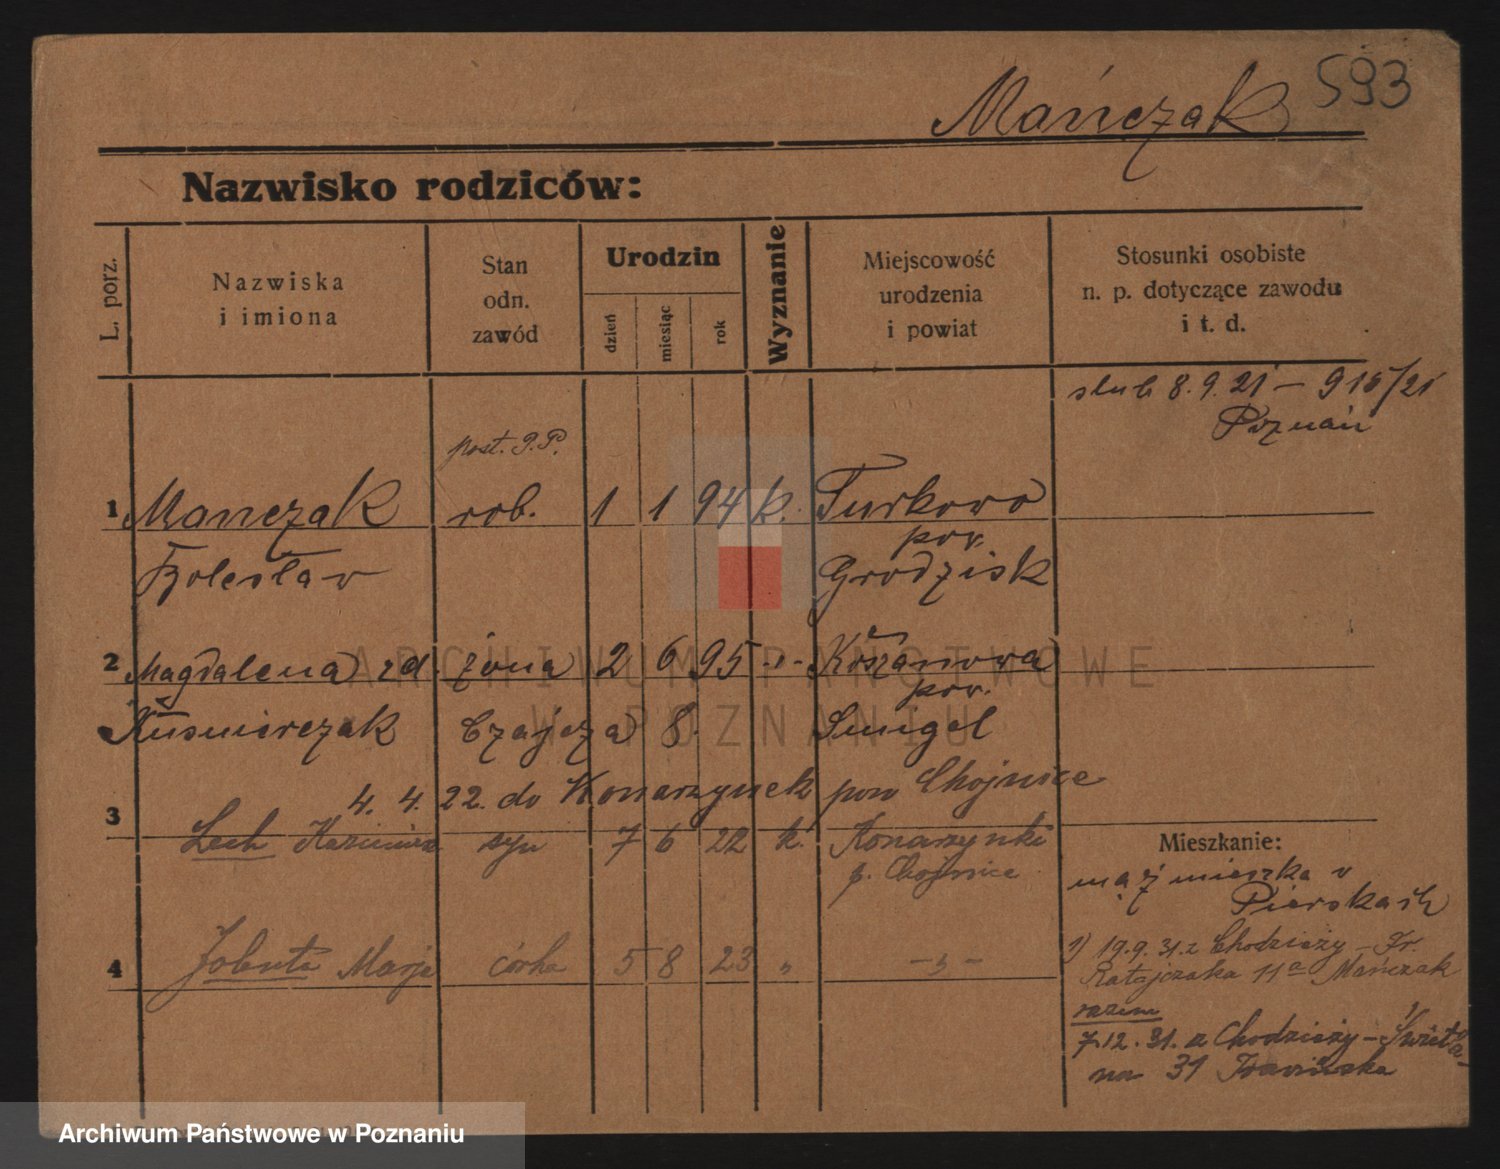 593
Mańczak
Nazwisko rodziców:
L. porz.
Nazwiska
i imiona
Stan
odn.
zawód
Urodzin
dzień
miesiąc
rok
Wyznanie
Miejscowość
urodzenia
i powiat
Stosunki osobiste
n. p. dotyczące zawodu
i t. d.
slub 8.9.21 — 915/21
Poznań
post. P.P.
1 Mańczak rob. 1 1 94 k. Turkowo
pow.
Bolesław Grodzisk
2 Magdalena zd żona 2 6 95 -„- Koszanowa
pow.
Kuśnierczak Czajcza 8. Smigel
4. 4. 22. do Konarzynek pow Chojnice
3 Lech Kazimierz syn 7 6 22 k. Konarzynki
p. Chojnice
Mieszkanie:
mąż mieszka w
Pierskach
4 Jolenta Marja córka 5 8 23 „ -„-
1) 19.9.31. z Chodzieży – Fr.
Ratajczaka 11a Mańczak
razem
7.12.31. z Chodzieży –
na 31
ARCHIWUM PAŃSTWOWE
W POZNANIU
Archiwum Państwowe w Poznaniu